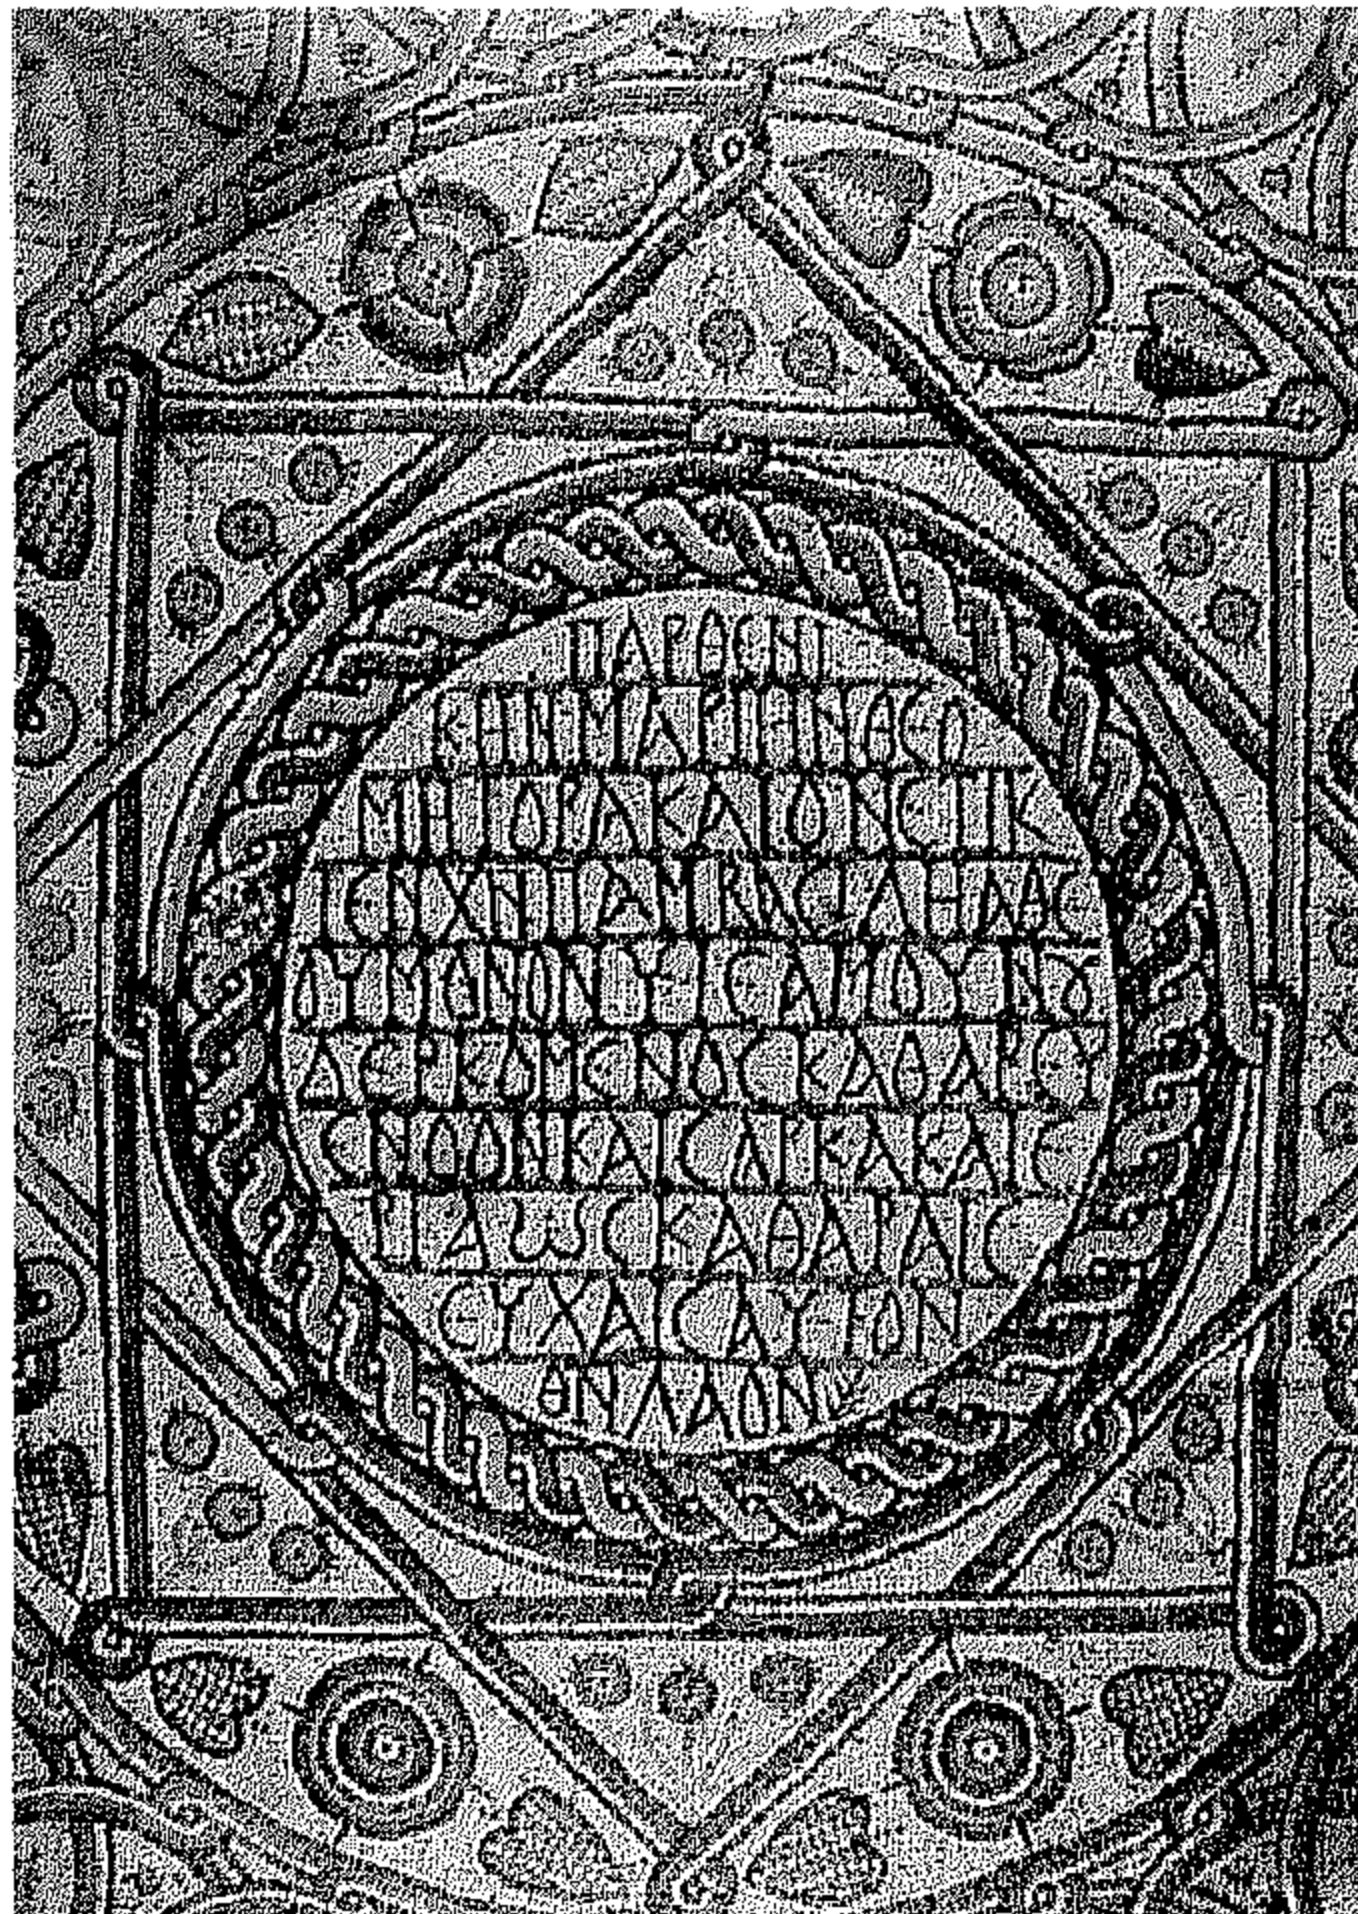 ΠΑΡΘΕΝΙ
ΚΗΝΜΑΡΙΗΝΘΕΟ
ΜΗΤΟΡΑΚΑΙΟΝΕΤΙΚ
ΤΕΝΧΝΠΑΜΒΑCΙΛΗΑΘΕ
ΟΥΜΟΝΟΝΥΙΕΑΜΟΥΝȢ
ΔΕΡΚΟΜΕΝΟCΚΑΘΑΡΕΥ
ΕΝΟΟΝΚΑΙCΑΡΚΑΚΑΙΕ
ΡΓΑωCΚΑΘΑΡΑΙC
ΕΥΧΑΙCΑΥΤΟΝ
ΘΝΛΑΟΝ